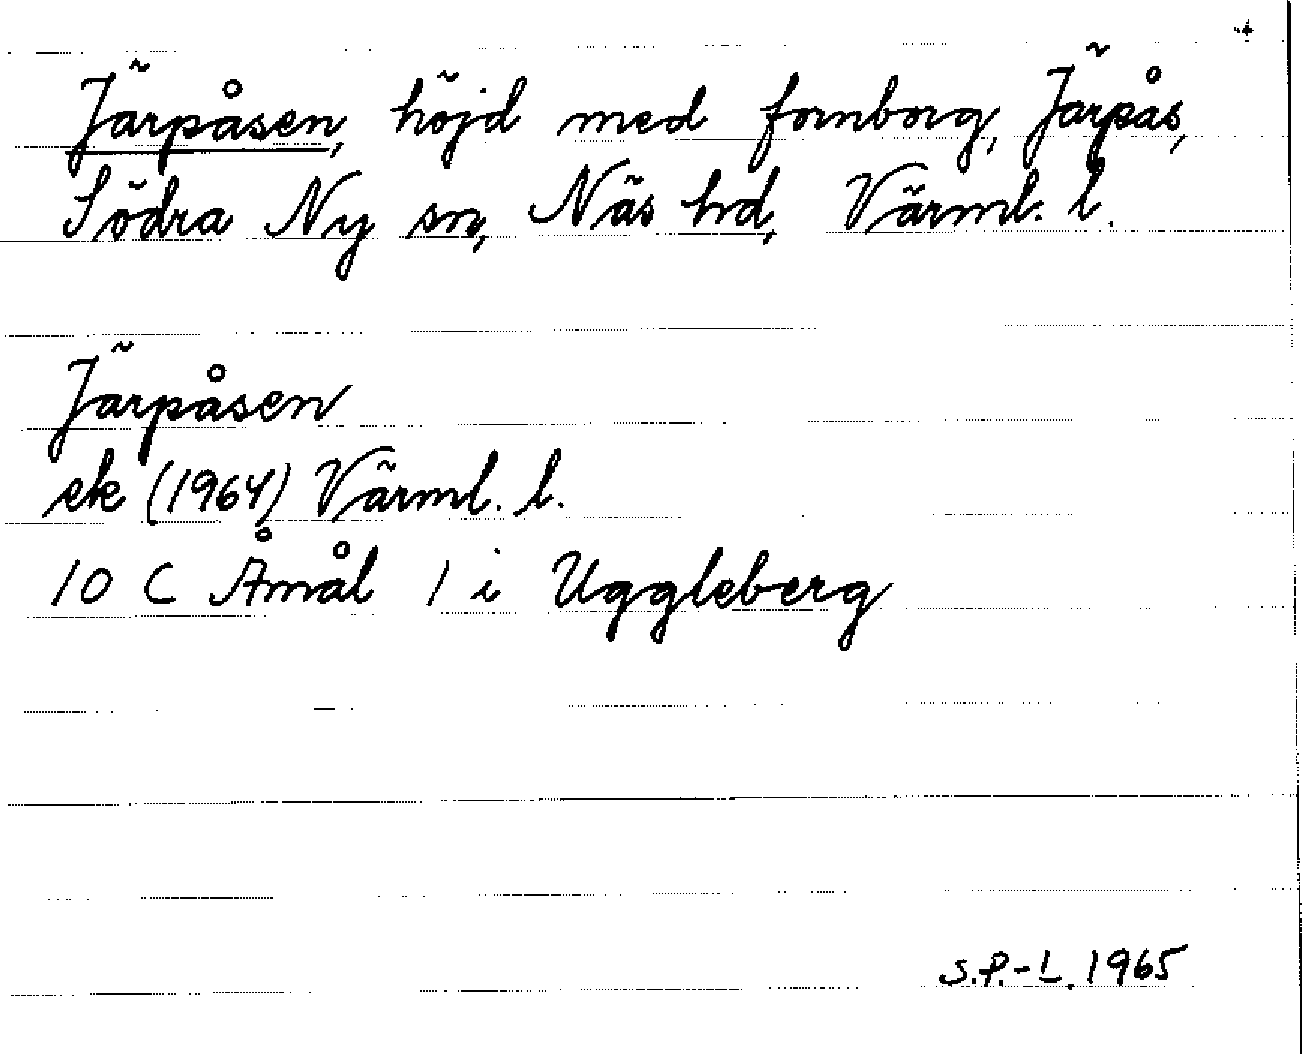 Järpåsen, höjd med fornborg, Järpås,
Södra Ny sn, Näs hd, Värml. l.
Järpåsen
ek (1964) Värml. l.
10 C Åmål 1 i Uggleberg
S.P.-L. 1965